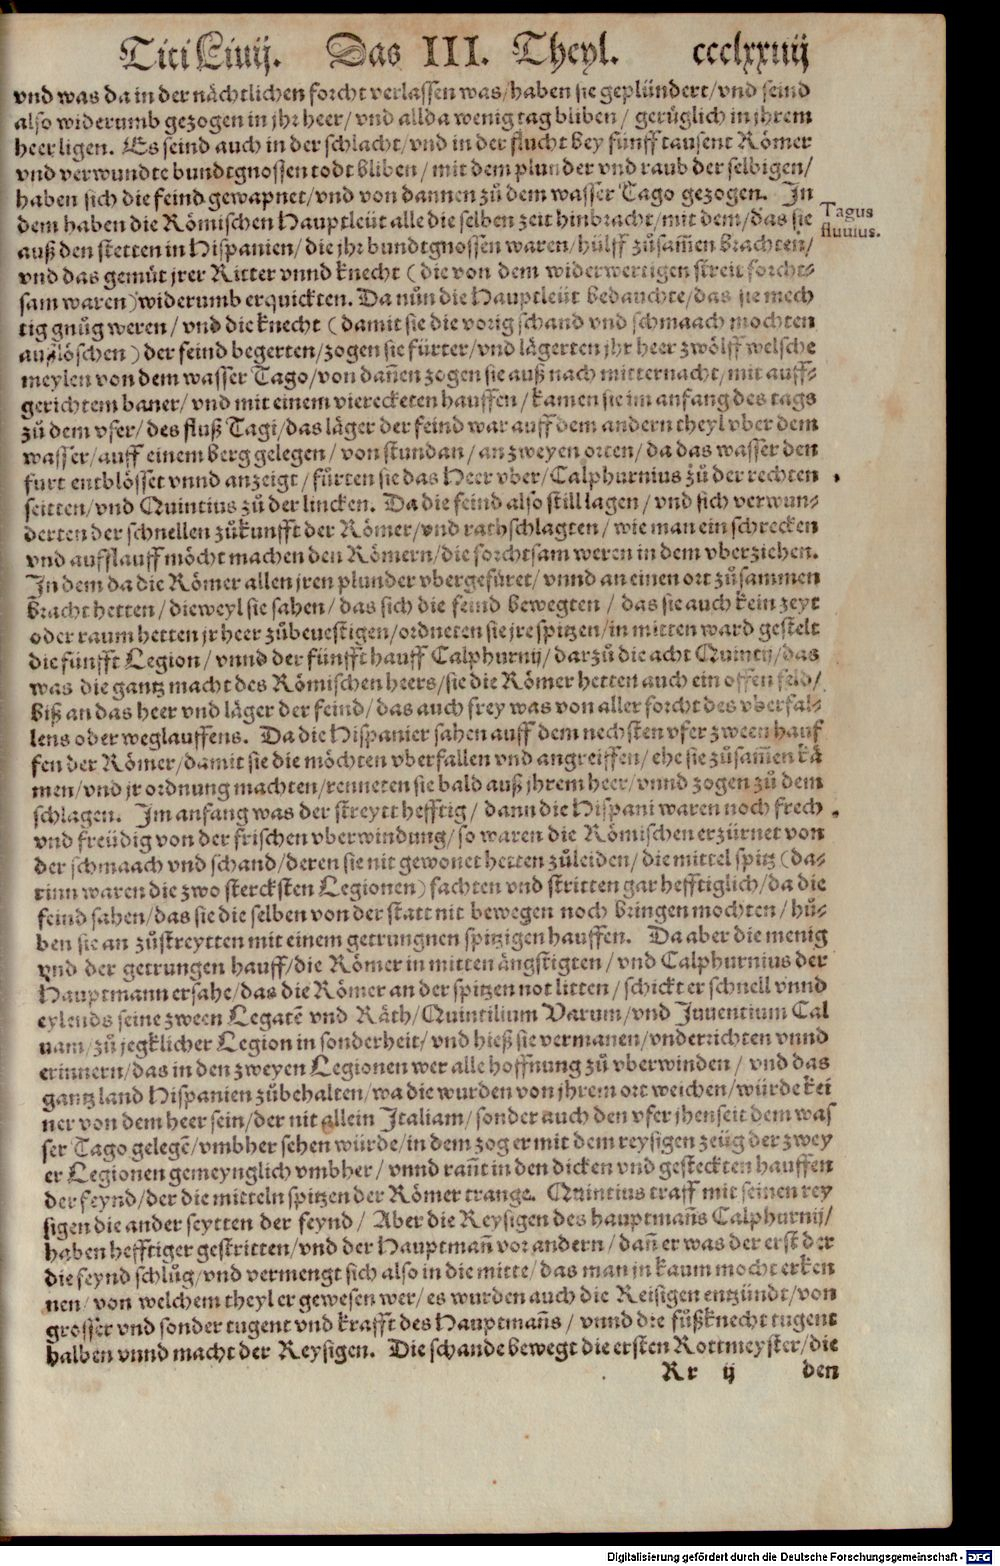 Titi Liuij. Das III. Theyl. ccclxxiiij
vnd was da in der nächtlichen forcht verlassen was/haben sie geplündert/vnd seind
also widerumb gezogen in jhr heer/ vnd allda wenig tag bliben/ gerüglich in jhrem
heer ligen. Es seind auch in der schlacht/vnd in der flucht bey fünff tausent Römer
vnd verwundte bundtgnossen todt bliben/ mit dem plunder vnd raub der selbigen/
haben sich die feind gewapnet/vnd von dannen zů dem wasser Tago gezogen. In
dem haben die Römischen Hauptleüt alle die selben zeit hinbracht/mit dem/das sie
Tagus
fluuius.
auß den stetten in Hispanien/die jhr bundtgnossen waren/hülff zůsam̃en brachten/
vnd das gemüt jrer Ritter vnnd knecht (die von dem widerwertigen streit forcht-
sam waren)widerumb erquickten. Da nůn die Hauptleüt bedauchte/das sie mech
tig gnůg weren/ vnd die knecht (damit sie die vorig schand vnd schmaach mochten
außlöschen) der feind begerten/zogen sie fürter/vnd lägerten jhr heer zwölff welsche
meylen von dem wasser Tago/von dañen zogen sie auß nach mitternacht/mit auff-
gerichtem baner/ vnd mit einem vierecketen hauffen/kamen sie im anfang des tags
zů dem vfer/des fluß Tagi/das läger der feind war auff dem andern theyl vber dem
wasser/auff einem berg gelegen/ von stundan/an zweyen orten/da das wasser den
furt entblösset vnnd anzeigt/fürten sie das Heer vber/Calphurnius zů der rechten
seitten/vnd Quintius zů der lincken. Da die feind also still lagen/vnd sich verwun-
derten der schnellen zůkunfft der Römer/vnd rathschlagten/wie man ein schrecken
vnd aufflauff möcht machen den Römern/die forchtsam weren in dem vberziehen.
In dem da die Römer allen jren plunder vbergefüret/vnnd an einen ort zůsammen
bracht hetten/dieweyl sie sahen/das sich die feind bewegten/das sie auch kein zeyt
oder raum hetten jr heer zůbeuestigen/ordneten sie jre spitzen/in mitten ward gestelt
die fünfft Legion/vnnd der fünfft hauff Calphurnij/darzů die acht Quintij/das
was die gantz macht des Römischen heers/sie die Römer hetten auch ein offen feld/
biß an das heer vnd läger der feind/das auch frey was von aller forcht des vberfal-
lens oder weglauffens. Da die Hispanier sahen auff dem nechsten vfer zween hauf
fen der Römer/damit sie die möchten vberfallen vnd angreiffen/ehe sie zůsam̃en kä
men/vnd jr ordnung machten/renneten sie bald auß jhrem heer/vnnd zogen zů dem
schlagen. Im anfang was der streytt hefftig/dann die Hispani waren noch frech
vnd freüdig von der frischen vberwindung/so waren die Römischen erzürnet von
der schmaach vnd schand/deren sie nit gewonet hetten zůleiden/die mittel spitz (da-
rinn waren die zwo stercksten Legionen) fachten vnd stritten gar hefftiglich/da die
feind sahen/das sie die selben von der statt nit bewegen noch bringen mochten/hů-
ben sie an zůstreytten mit einem getrungnen spitzigen hauffen. Da aber die menig
vnd der getrungen hauff/die Römer in mitten ängstigten/vnd Calphurnius der
Hauptmann ersahe/das die Römer an der spitzen not litten/schickt er schnell vnnd
eylends seine zween Legatē vnd Räth/Quintilium Varum/vnd Juuentium Tal
uam/zů jegklicher Legion in sonderheit/vnd hieß sie vermanen/vnderrichten vnnd
erinnern/das in den zweyen Legionen wer alle hoffnung zů vberwinden/vnd das
gantz land Hispanien zůbehalten/wa die wurden von jhrem ort weichen/würde kei
ner von dem heer sein/der nit allein Italiam/sonder auch den vfer jhenseit dem was
ser Tago gelegē/vmbher sehen würde/in dem zog er mit dem reysigen zeüg der zwey
er Legionen gemeynglich vmbher/vnnd rañt in den dicken vnd gesteckten hauffen
der feynd/der die mitteln spitzen der Römer trange. Quintius traff mit seinen rey
sigen die ander seytten der feynd/ Aber die Reysigen des hauptmañs Calphurnij/
haben hefftiger gestritten/vnd der Hauptmañ vor andern/dañ er was der erst der
die feynd schlůg/vnd vermengt sich also in die mitte/das man jn kaum mocht erken
nen/von welchem theyl er gewesen wer/es wurden auch die Reisigen entzündt/von
grosser vnd sonder tugent vnd krafft des Hauptmañs/vnnd die fůßknecht tugent
halben vnnd macht der Reysigen. Die schande bewegt die ersten Rottmeyster/die
Rr ij den
Digitalisierung gefördert durch die Deutsche Forschungsgemeinschaft - DFG